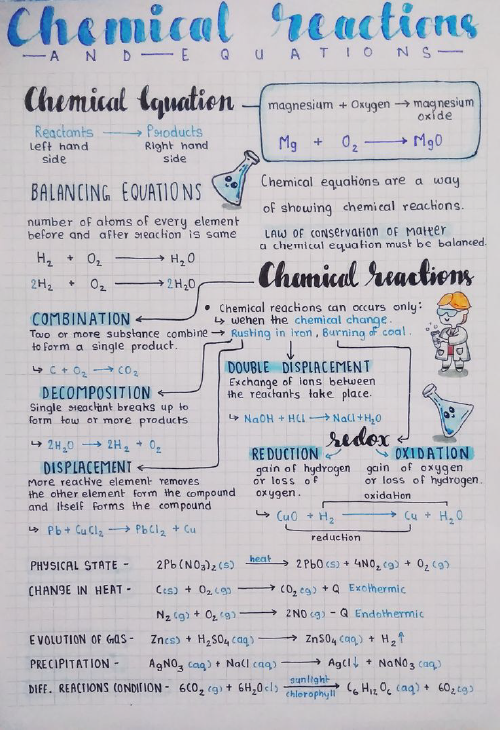 Chemical reactions
—AND—EQUATIONS—
Chemical Equation
magnesium + Oxygen → magnesium
oxide
Mg + O₂ → MgO
Reactants → Products
Left hand Right hand
side side
BALANCING EQUATIONS
number of atoms of every element
before and after reaction is same
H₂ + O₂ → H₂O
2H₂ + O₂ → 2H₂O
Chemical equations are a way
of showing chemical reactions.
LAW OF CONSERVATION OF MATTER
a chemical equation must be balanced.
Chemical reactions
• Chemical reactions can occurs only:
↳ wehen the chemical change.
→ Rusting in iron, Burning of coal.
COMBINATION
Two or more substance combine
to form a single product.
↳ C + O₂ → CO₂
DECOMPOSITION
Single reactant breaks up to
form tow or more products
↳ 2H₂O → 2H₂ + O₂
DISPLACEMENT
More reactive element removes
the other element form the compound
and itself forms the compound
↳ Pb + CuCl₂ → PbCl₂ + Cu
DOUBLE DISPLACEMENT
Exchange of ions between
the reactants take place.
↳ NaOH + HCl → NaCl + H₂O
redox
REDUCTION
gain of hydrogen
or loss of
oxygen.
OXIDATION
gain of oxygen
or loss of hydrogen.
oxidation
↳ CuO + H₂ → Cu + H₂O
reduction
PHYSICAL STATE - 2Pb(NO₃)₂(s) heat → 2PbO(s) + 4NO₂(g) + O₂(g)
CHANGE IN HEAT - C(s) + O₂(g) → CO₂(g) + Q Exothermic
N₂(g) + O₂(g) → 2NO(g) - Q Endothermic
EVOLUTION OF GAS - Zn(s) + H₂SO₄(aq) → ZnSO₄(aq) + H₂↑
PRECIPITATION - AgNO₃(aq) + NaCl(aq) → AgCl↓ + NaNO₃(aq)
DIFF. REACTIONS CONDITION - 6CO₂(g) + 6H₂O(l) sunlight → chlorophyll C₆H₁₂O₆(aq) + 6O₂(g)